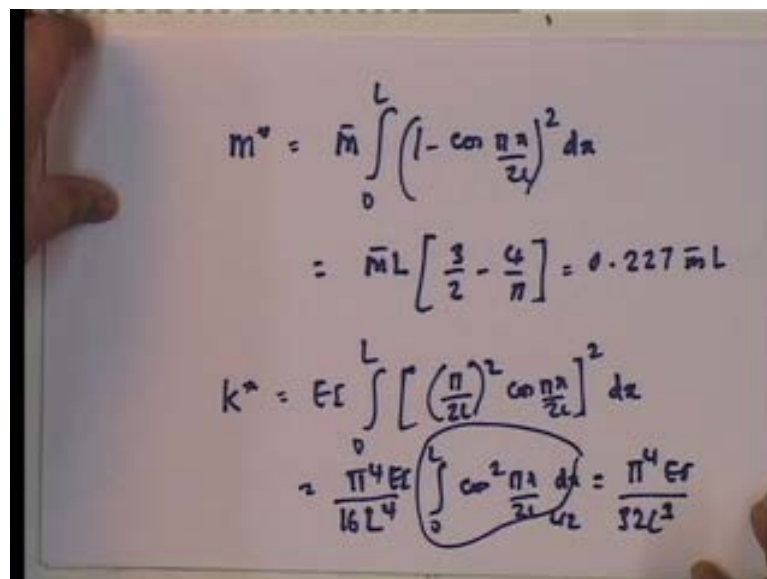 m* = m̄ ∫₀ᴸ (1 - cos πx/2L)² dx
= m̄L [3/2 - 4/π] = 0.227 m̄L
k* = EI ∫₀ᴸ [(π/2L)² cos πx/2L]² dx
= π⁴EI/16L⁴ ∫₀ᴸ cos² πx/2L dx = π⁴EI/32L³
L/2